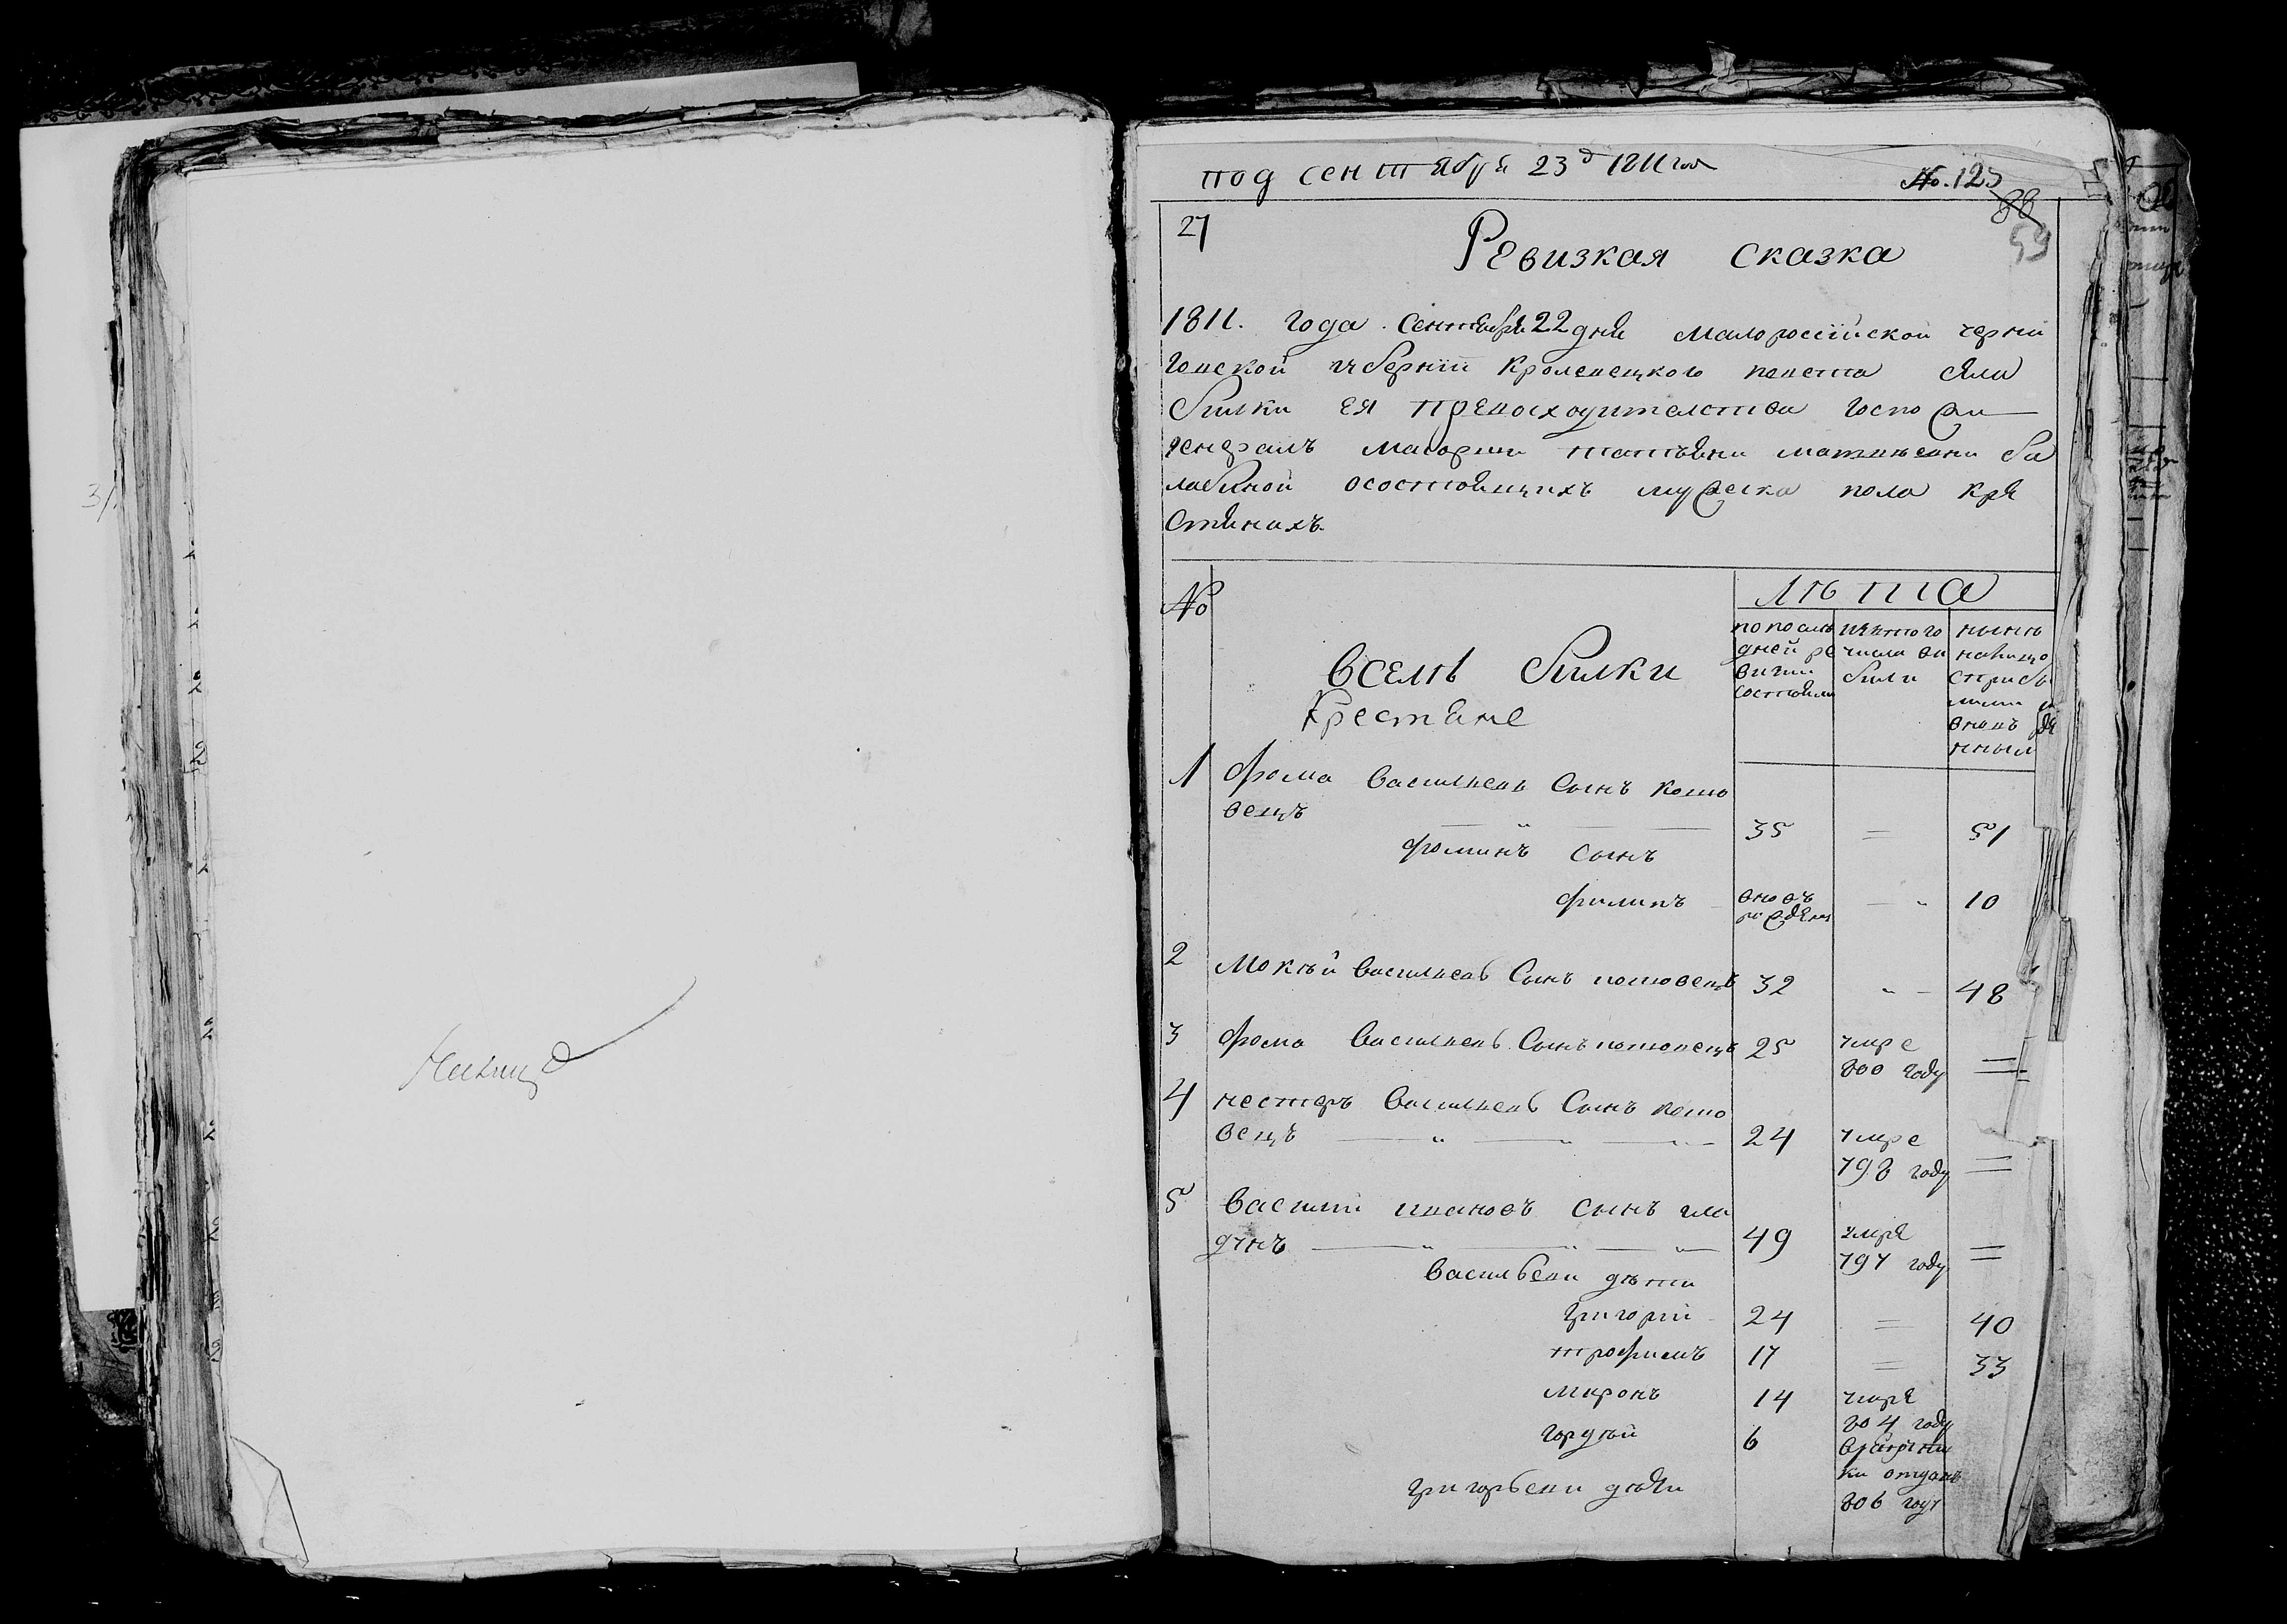 под сентября 23д 1811 год
No. 123
88
59
27
Ревизкая сказка
1811. года. Сентября 22 дня малороссійской черни
говской губерніи Кролевецкого повета села
Билки ея превосходителства госпожи
генералъ маіорши
лабиной осостоящихъ мужеска пола кре
стянахъ.
No
Лѣта
вселѣ Билки
Крестяне
попослѣ
дней ре
визии
состояли
изтого
числа вы
были
нынѣ
налицо
1 фома Василиевъ Сынъ кошо
вецъ 35 = 51
фоминъ сынъ
филипъ вновъ рожденъ — 10
2 Мокѣй Василиевъ Сынъ кошовецъ 32 — 48
3 фома Василиевъ Сынъ кошовецъ 25 умре
800 году =
4 нестеръ Василиевъ Сынъ кошо
вецъ 24 умре
798 году =
5 Василий ивановъ сынъ гла
дунъ 49 умре
797 году =
Васильеви дѣти
григорий 24 = 40
трофимъ 17 = 33
миронъ 14 умре
804 году
гордѣй 6
отданъ
806 году
григорьеви дѣти